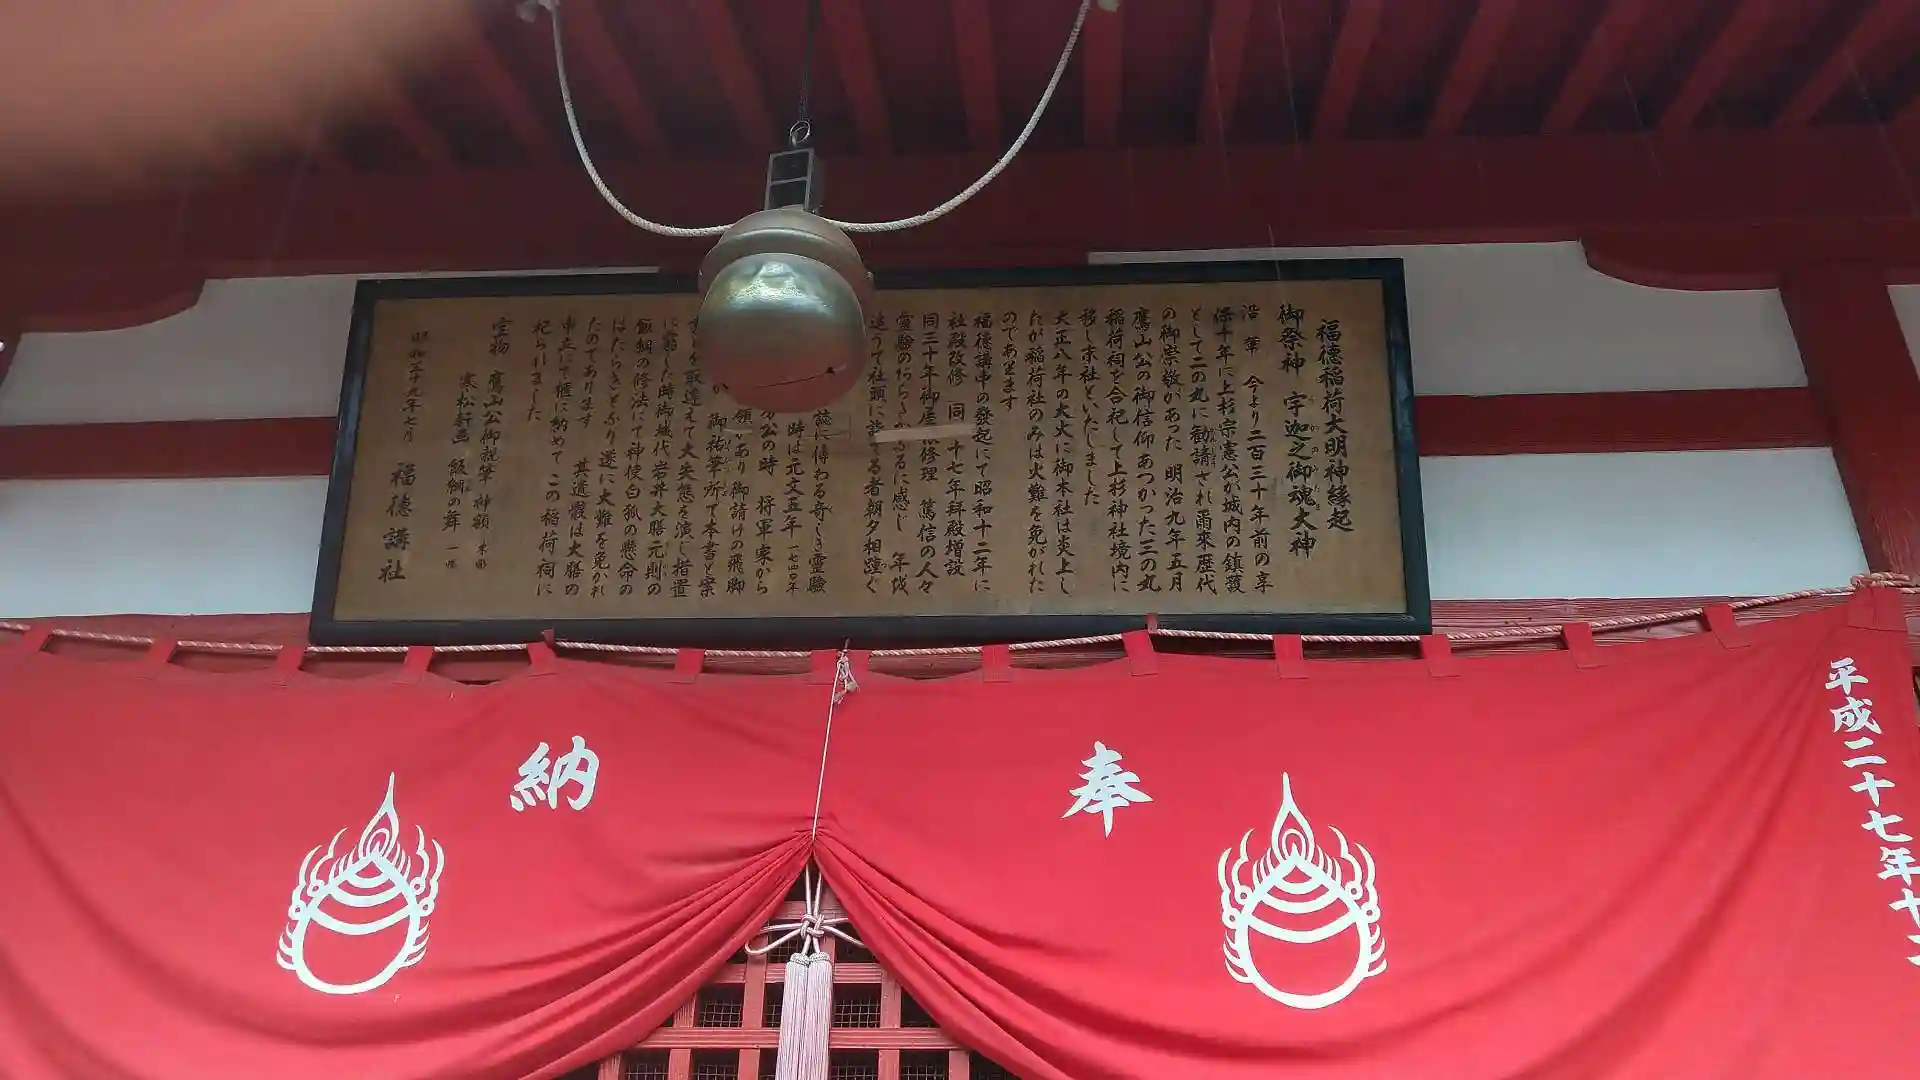 福徳稲荷大明神縁起
御祭神 宇迦之御魂大神
沿革 今より二百三十年前の享
保十年に上杉宗憲公が城内の鎮護
として二の丸に勧請され爾来歴代
の御崇敬があった 明治九年五月
鷹山公の御信仰あつかった三の丸
稲荷祠を合祀して上杉神社境内に
移し末社といたしました
大正八年の大火に御本社は炎上し
たが稲荷社のみは火難を免がれた
のであります
福徳講中の發起にて昭和十二年に
社殿改修 同 十七年拝殿増設
同三十年御屋 修理 篤信の人々
霊験のあらたかなるに感じ 年伐
逐うて社頭に詣でる者朝夕相踵ぐ
誌に傳わる奇しき霊験
時は元文五年 一七四〇年
公の時 将軍家から
領があり御請けの飛脚
が 御祐筆所で本書と案
を取違えて大失態を演じ措置
に窮した時御城代岩井大膳元則の
飯綱の修法にて神使白狐の懸命の
はたらきとなり遂に大難を免かれ
たのであります 其遺骸は大膳の
申立にて櫃に納めてこの稲荷祠に
祀られました
宝物 鷹山公御親筆神額 木彫
寒松軒画 飯綱の舞 一幅
昭和三十九年七月 福徳講社
奉
納
平成二十七年十二